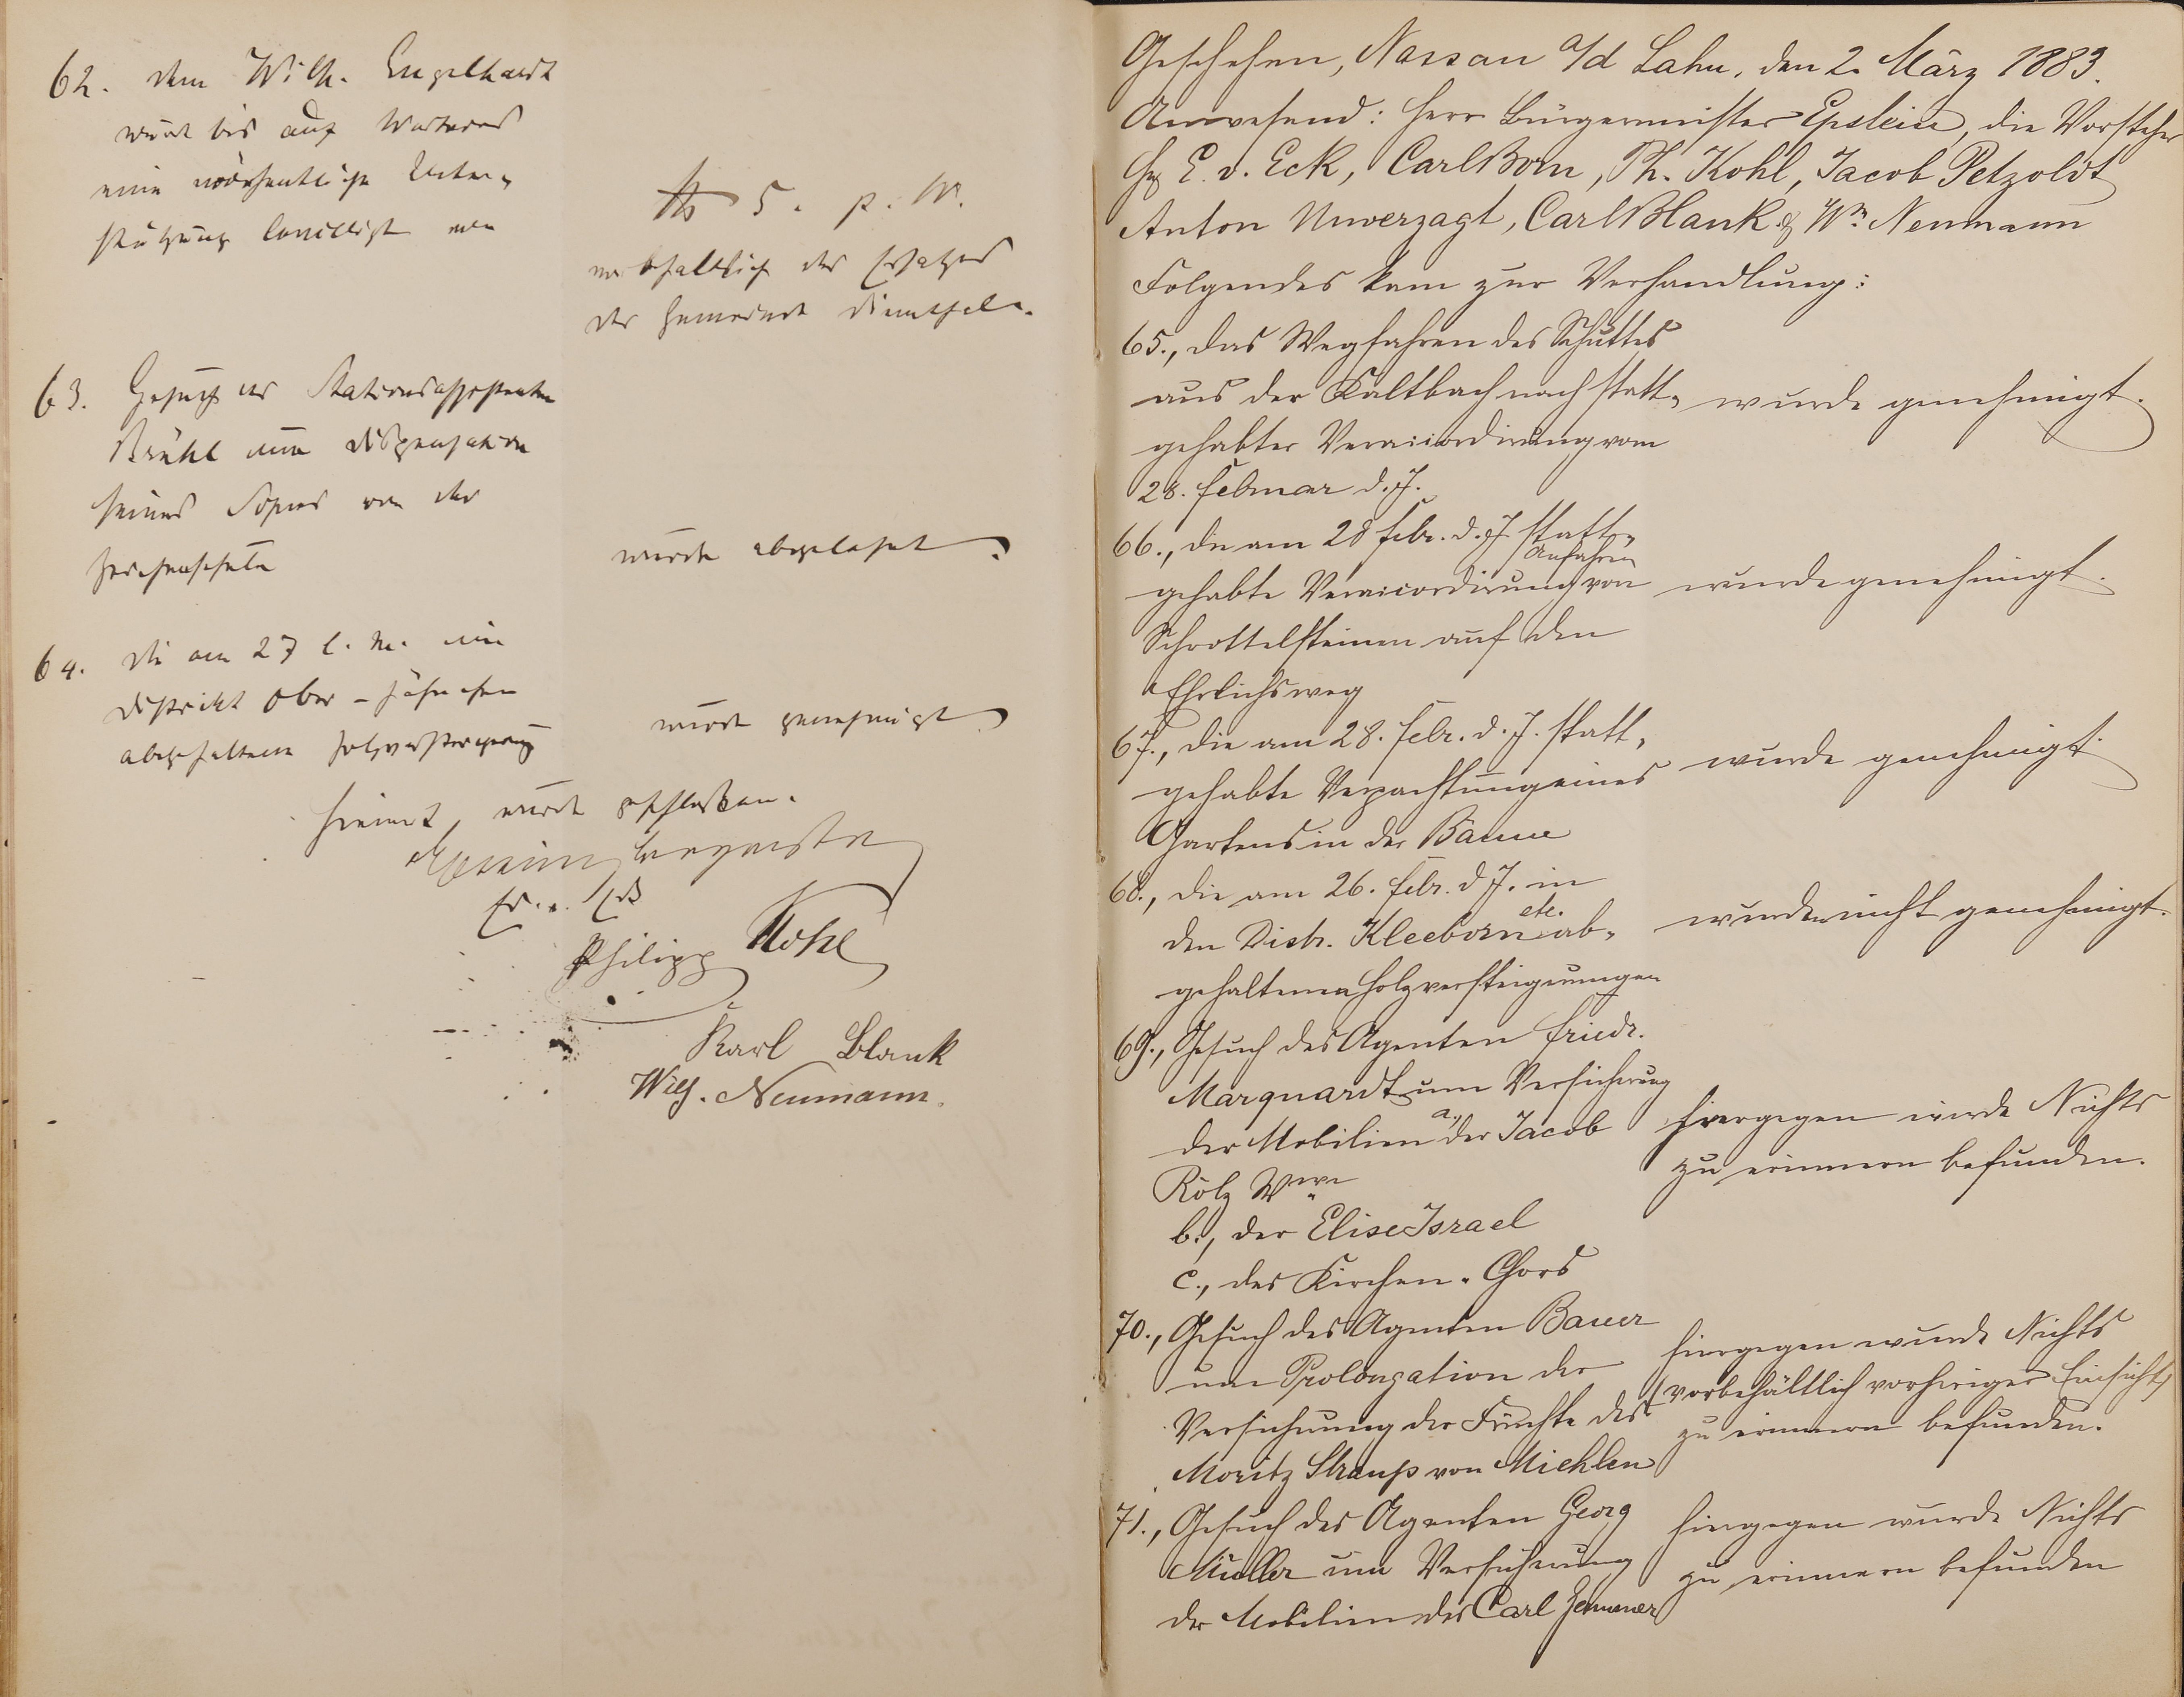 62. dem Wilh. Engelhardt
wird bis auf Weiteres
eine wöchentliche Unter-
stützung bewilligt von
M 5. p. W.
vorbehaltlich des Ersatzes
der Gemeinde Dienethal.
63. Gesuch des Stationsassistenten
Brühl um Dispensation
seines Sohnes von der
Zeichenschule
wurde abgelehnt.
64. die am 27 l. M. im
Distrikt Ober-
abgehaltene Holzversteigerung
wurde genehmigt
Hiermit, wurde geschlossen.
Epstein Bürgermeister
Philipp Kohl
Karl Blank
Wilh. Neumann.
Geschehen, Nassau a/d Lahn, den 2. März 1883.
Anwesend: Herr Bürgermeister Epstein, die Vorsteher
HH E. v. Eck, Carl Born, Ph. Kohl, Jacob Petzoldt
Anton Unverzagt, Carl Blank & Wm Neumann
Folgendes kam zur Verhandlung:
65., das Wegfahren des Schuttes
aus der Kaltbach nach statt-
gehabter Veraccordirung vom
28. Februar d. J.
wurde genehmigt.
66., die am 28 Febr. d. J. statt-
gehabte Veraccordirung Anfahren von
Schrottelsteinen auf den
Ehrlichsweg
wurde genehmigt.
67., die am 28. Febr. d. J. statt-
gehabte Verpachtung eines
Gartens in der
wurde genehmigt.
68., die am 26. Febr. d J. in
den Distr. Kleeborn etc. ab-
gehaltenen Holzversteigerungen
wurden nicht genehmigt.
69., Gesuch des Agenten Friedr.
Marquardt um Versicherung
der Mobilien a., der Jacob
Rölz Wwe
b., der Elise Israel
c., des Kirchen-Chors
hiergegen wurde Nichts
zu erinnern befunden.
70., Gesuch des Agenten Bauer
um Prolongation der
Versicherung der Früchte des
Moritz Strauß von Miehlen
hiergegen wurde Nichts
(vorbehältlich vorheriger Einsicht)
zu erinnern befunden.
71., Gesuch des Agenten Georg
Müller um Versicherung
der Mobilien des Carl
hiergegen wurde Nichts
zu erinnern befunden